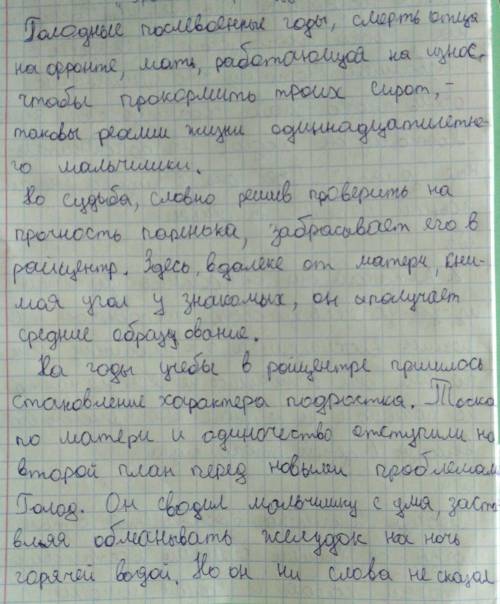 Голодные послевоенные годы, смерть отца
на фронте, мать, работающей на износ,
чтобы прокормить троих сирот, -
таковы реалии жизни одиннадцатилетне-
го мальчишки.
Но судьба, словно решив проверить на
прочность паренька, забрасывает его в
райцентр. Здесь, вдалеке от матери, сни-
мая угол у знакомых, он и получает
средние образование.
На годы учебы в райцентре пришлось
становление характера подростка. Тоска
по матери и одиночество отступили на
второй план перед новыми проблемам
Голод. Он сводил мальчишку с ума, заст
вляя обманывать желудок на ночь
горячей водой. Но он ни слова не сказал